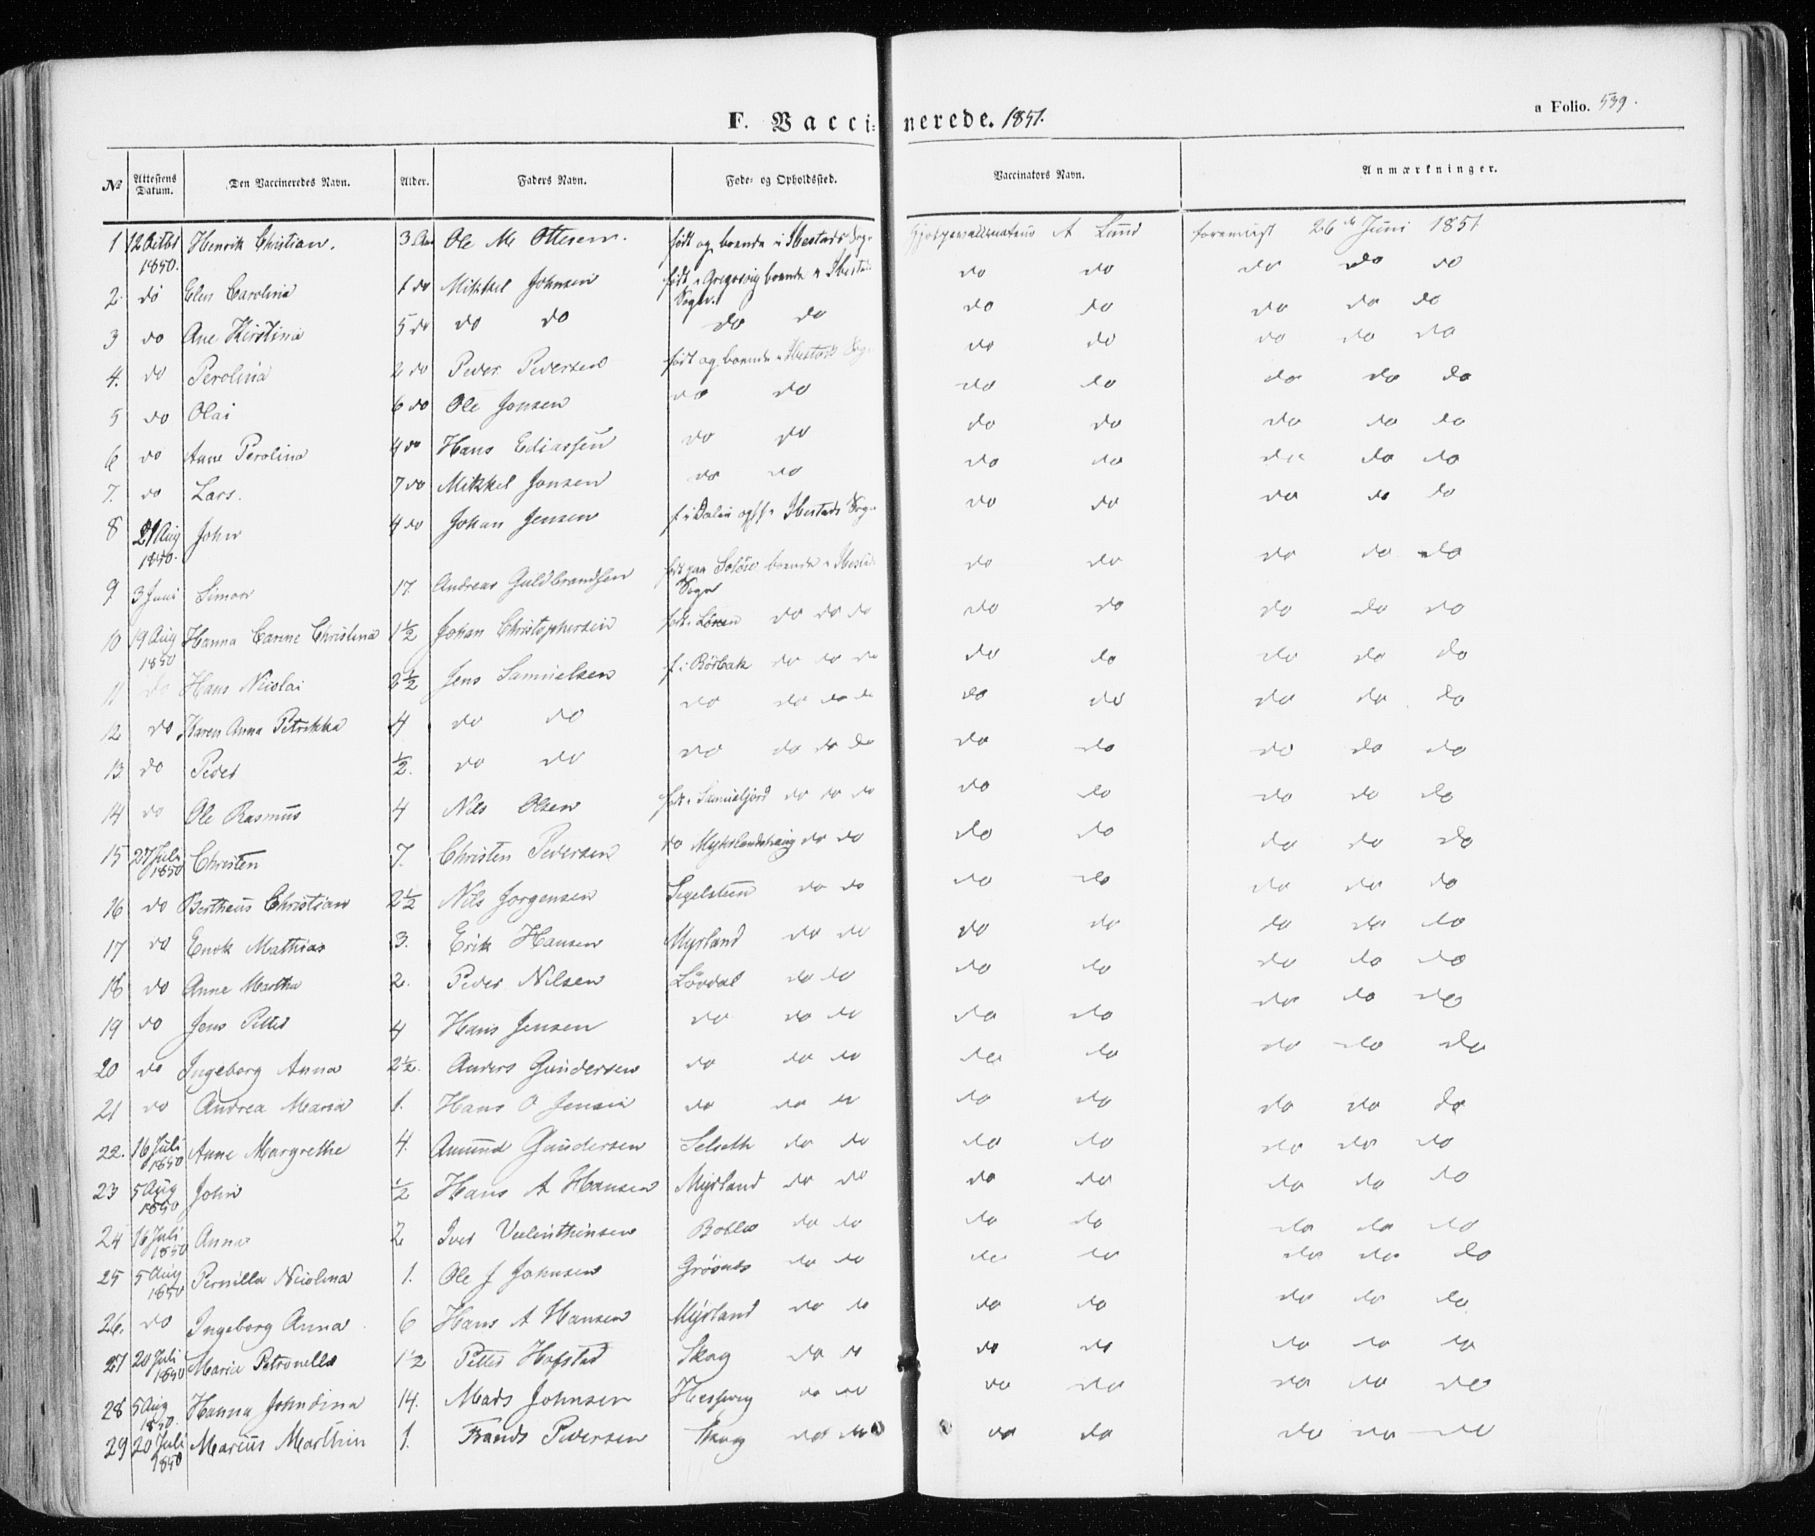 F. Vaccinerede. 1851.
a Folio. 539.
No Attestens Datum. Den Vaccineredes Navn. Alder. Faders Navn. Føde- og Opholdssted. Vaccinators Navn. Anmærkninger.
1 12 Octbr 1850. Henrik Christian. 3 Aar Ole M Ottesen. født og boende i Ibestads Sogn A Lund foreviist 26de Juni 1851
2 do Elen Carolina 1 do Mikkel Johnsen født i boende i Ibestad Sogn. do do do do do
3 do Ane Kirstina 5 do do do do do do do do do do
4. do Perolina 2 do Peder Pedersen født og boende i Ibestad Sogn do do do do do
5 do Olai 6 do Ole Jonsen do do do do do do do
6 do Anne Perolina 4 do Hans Ediassen do do do do do do do
7. do Lars. 7 do Mikkel Jonsen do do do do do do do
8 21 Aug 1850. John 4 do Johan Jensen Ibestads Sogn do do do do do
9 3 Juni Simon 17. Andreas Guldbrandsen født paa boende i Ibestad Sogn do do do do do
10 19 Aug 1850 Hanna Carine Christina 1½ Johan Christophersen do do do do do do do do
11 do Hans Nicolai 2½ Jens Samuelsen f. i Børbak do do do do do do do do
12 do Karen Anna Petrikka 4 do do do do do do do do do do do
13 do Peder ½. do do do do do do do do do do do
14 do Ole Rasmus 4 Nils Olsen do do do do do do do do
15 27 Juli 1850 Christen 7. Christen Pedersen do do do do do do do do
16 do Bertheus Christian 2½ Nils Jørgensen Segelsteen do do do do do do do
17 do Enok Mathias 3. Erik Hansen Myrland do do do do do do do
18 do Anne Martha 2. Peder Nilsen Løvdal do do do do do do do
19 do Jens Petter 4 Hans Jensen do do do do do do do do
20 do Ingeborg Anna 2½. Anders Gundersen do do do do do do do do
21 do Andrea Maria 1. Hans O Jensen do do do do do do do do
22. 16 Juli 1850 Anne Margrethe 4. Amund Gundersen Selseth do do do do do do do
23 5 Aug 1850 John ½ Hans A Hansen Myrland do do do do do do do
24 16 Juli 1850 Anna 2 Iver do do do do do do do
25 5 Aug 1850 Pernilla Nicolina 1. Ole J Johnsen Grøsnes do do do do do do do
26. do Ingeborg Anna 6 Hans A Hansen Myrland do do do do do do do
27 20 Juli 1850 Marie Petronella 1½ Petter Hofstad Skog do do do do do do do
28 5 Aug 1850. Hanna Johndina 14. Mads Johnsen do do do do do do do
29 20 Juli 1850 Marcus Marthin 1. Frands Pedersen Skog do do do do do do do